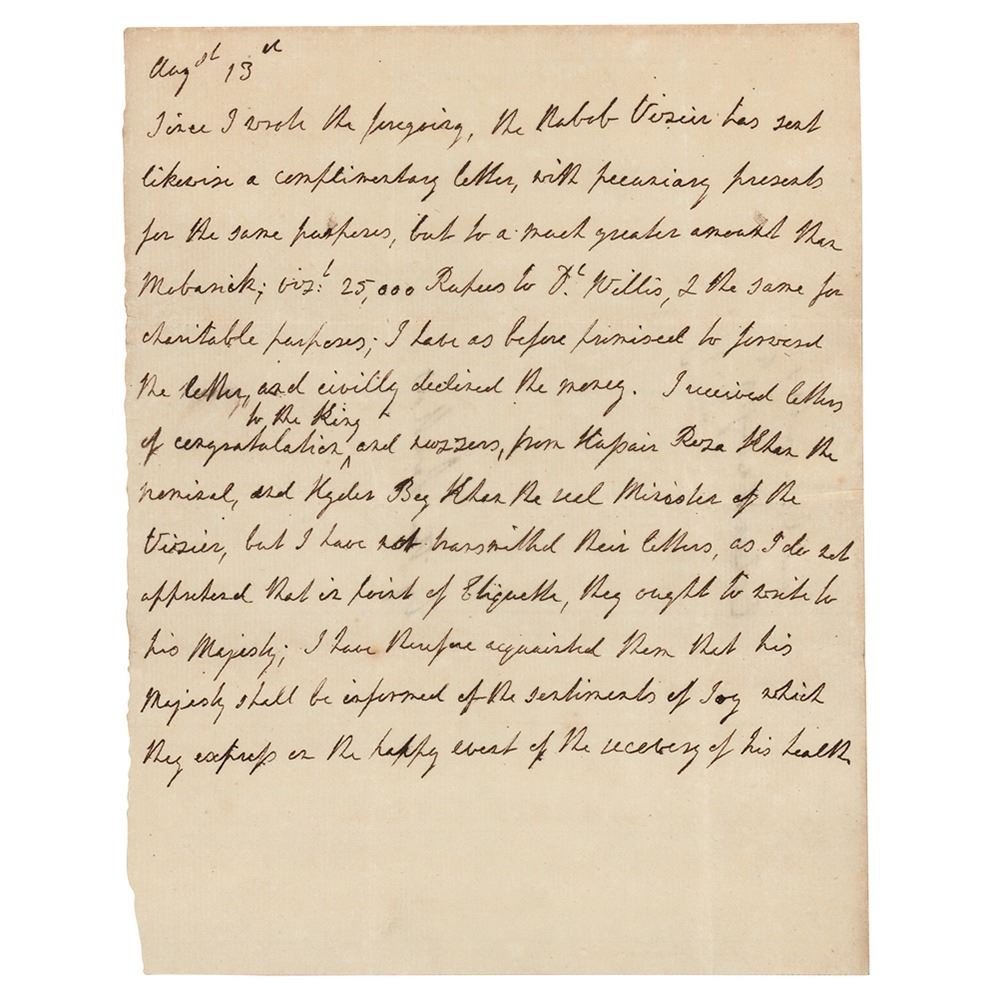 Augst 13th
Since I wrote the foregoing, the Nabob Vizier has sent
likewise a complimentary letter, with pecuniary presents
for the same purposes, but to a much greater amount than
Mobarick; vizt: 25,000 Rupees to Dr. Willis, & the same for
charitable purposes; I have as before promised to forward
the letter, and civilly declined the money. I received letters
to the King
of congratulation ^ and nuzzers, from Hussain Reza Khan the
nominal, and Hyder Beg Khan the real Minister of the
Vizier, but I have not transmitted their letters, as I do not
apprehend that in point of Etiquette, they ought to write to
his Majesty; I have therefore acquainted them that his
Majesty shall be informed of the sentiments of Joy which
they express on the happy event of the recovery of his health